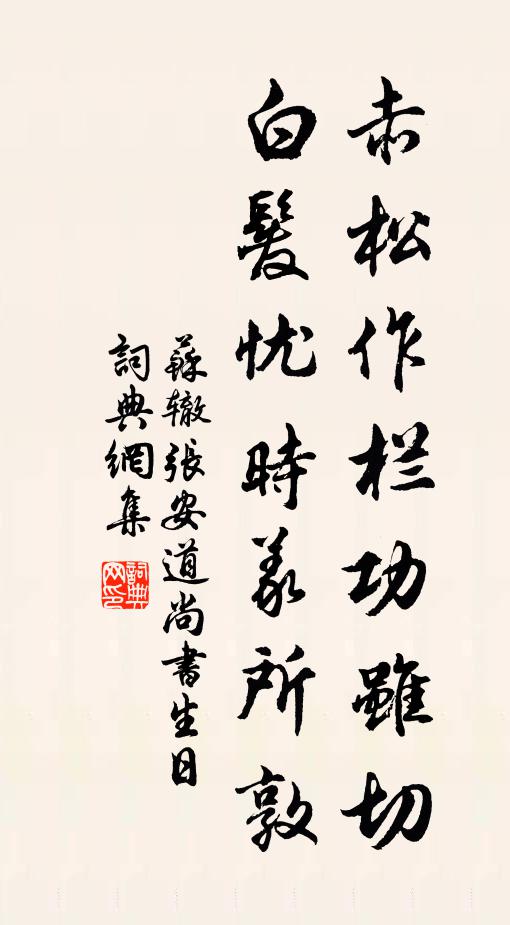 赤松作栏功雖切
白髮忧時義所敦
蘇辙張安道尚書生日
詞典網集
詞典网印